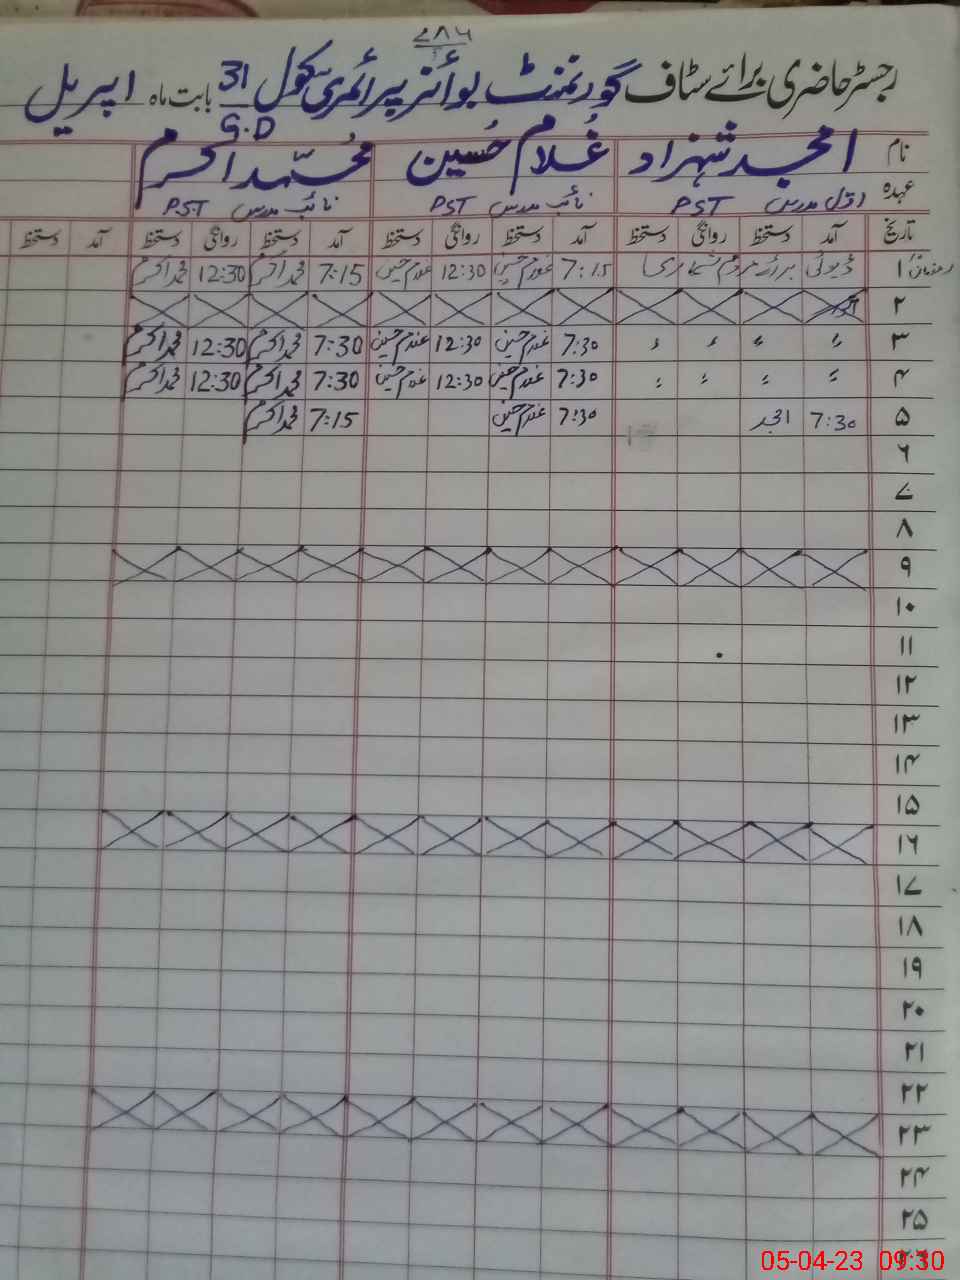 ۷۸۶
رجسٹر حاضری برائے سٹاف گورنمنٹ بوائز پرائمری سکول 31 G.D بابت ماہ اپریل
نام امجد شہزاد غلام حسین محمد اکرم
عہدہ اول مدرس PST نائب مدرس PST نائب مدرس P.S.T
تاریخ آمد دستخط روانگی دستخط آمد دستخط روانگی دستخط آمد دستخط روانگی دستخط آمد دستخط
۱ ڈیوٹی برائے مردم شماری 7:15 غلام حسین 12:30 غلام حسین 7:15 محمد اکرم 12:30 محمد اکرم
۲
۳ 〃 〃 〃 〃 7:30 غلام حسین 12:30 غلام حسین 7:30 محمد اکرم 12:30 محمد اکرم
۴ 〃 〃 〃 〃 7:30 غلام حسین 12:30 غلام حسین 7:30 محمد اکرم 12:30 محمد اکرم
۵ 7:30 امجد 7:30 غلام حسین 7:15 محمد اکرم
۶
۷
۸
۹
۱۰
۱۱
۱۲
۱۳
۱۴
۱۵
۱۶
۱۷
۱۸
۱۹
۲۰
۲۱
۲۲
۲۳
۲۴
۲۵
۲۶
05-04-23 09:30